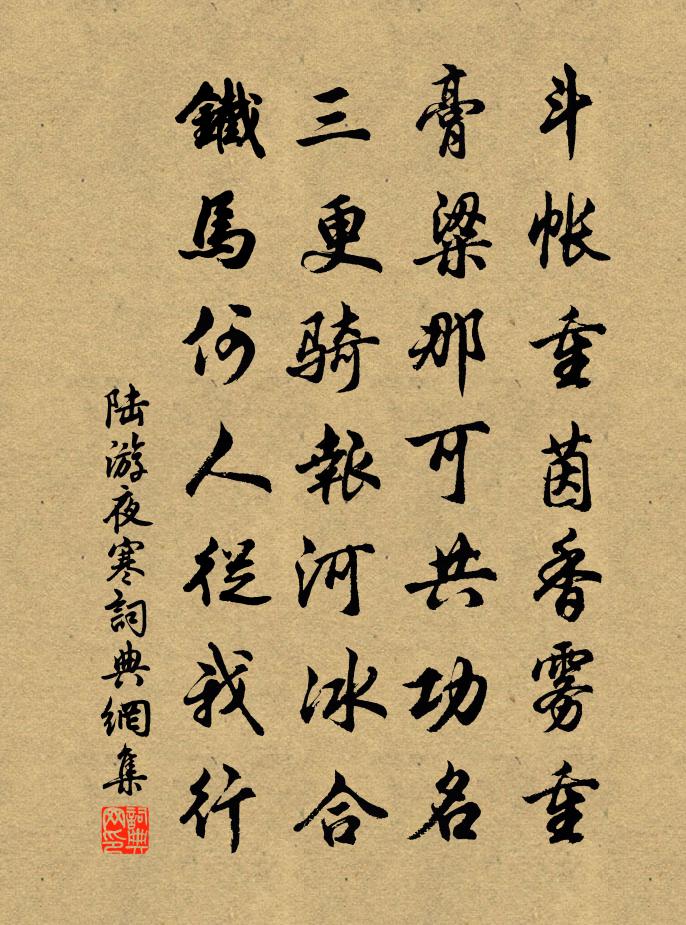 斗帳重茵香雾重
膏粱那可共功名
三更騎報河冰合
鐵馬何人從我行
陆游夜寒詞典網集
詞典網印